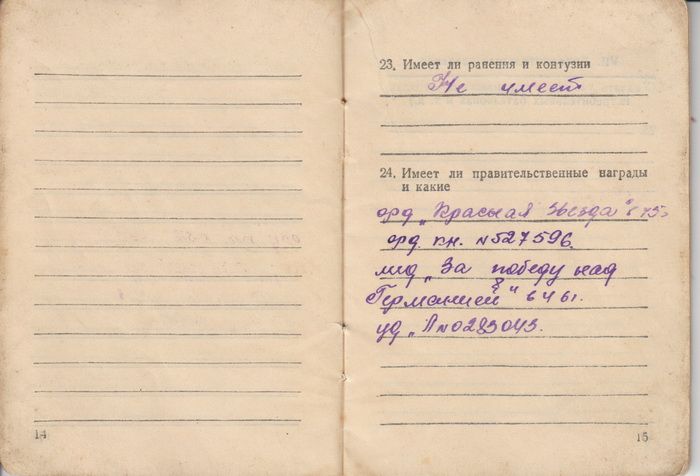 23. Имеет ли ранения и контузии
Не имеет
24. Имеет ли правительственные награды
и какие
орд „Красная Звезда"
орд. кн. №527596.
мед „За победу над
Германией"
уд „А №0283043.
14
15